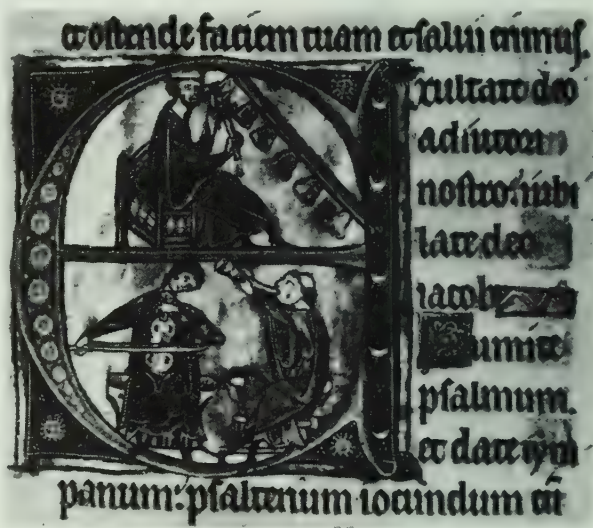 et ostende faciem tuam et salui erimus.
Exultate deo
adiutori
nostro: iubi
late deo
iacob
Sumite
psalmum.
et date tym
panum: psalterium iocundum cū